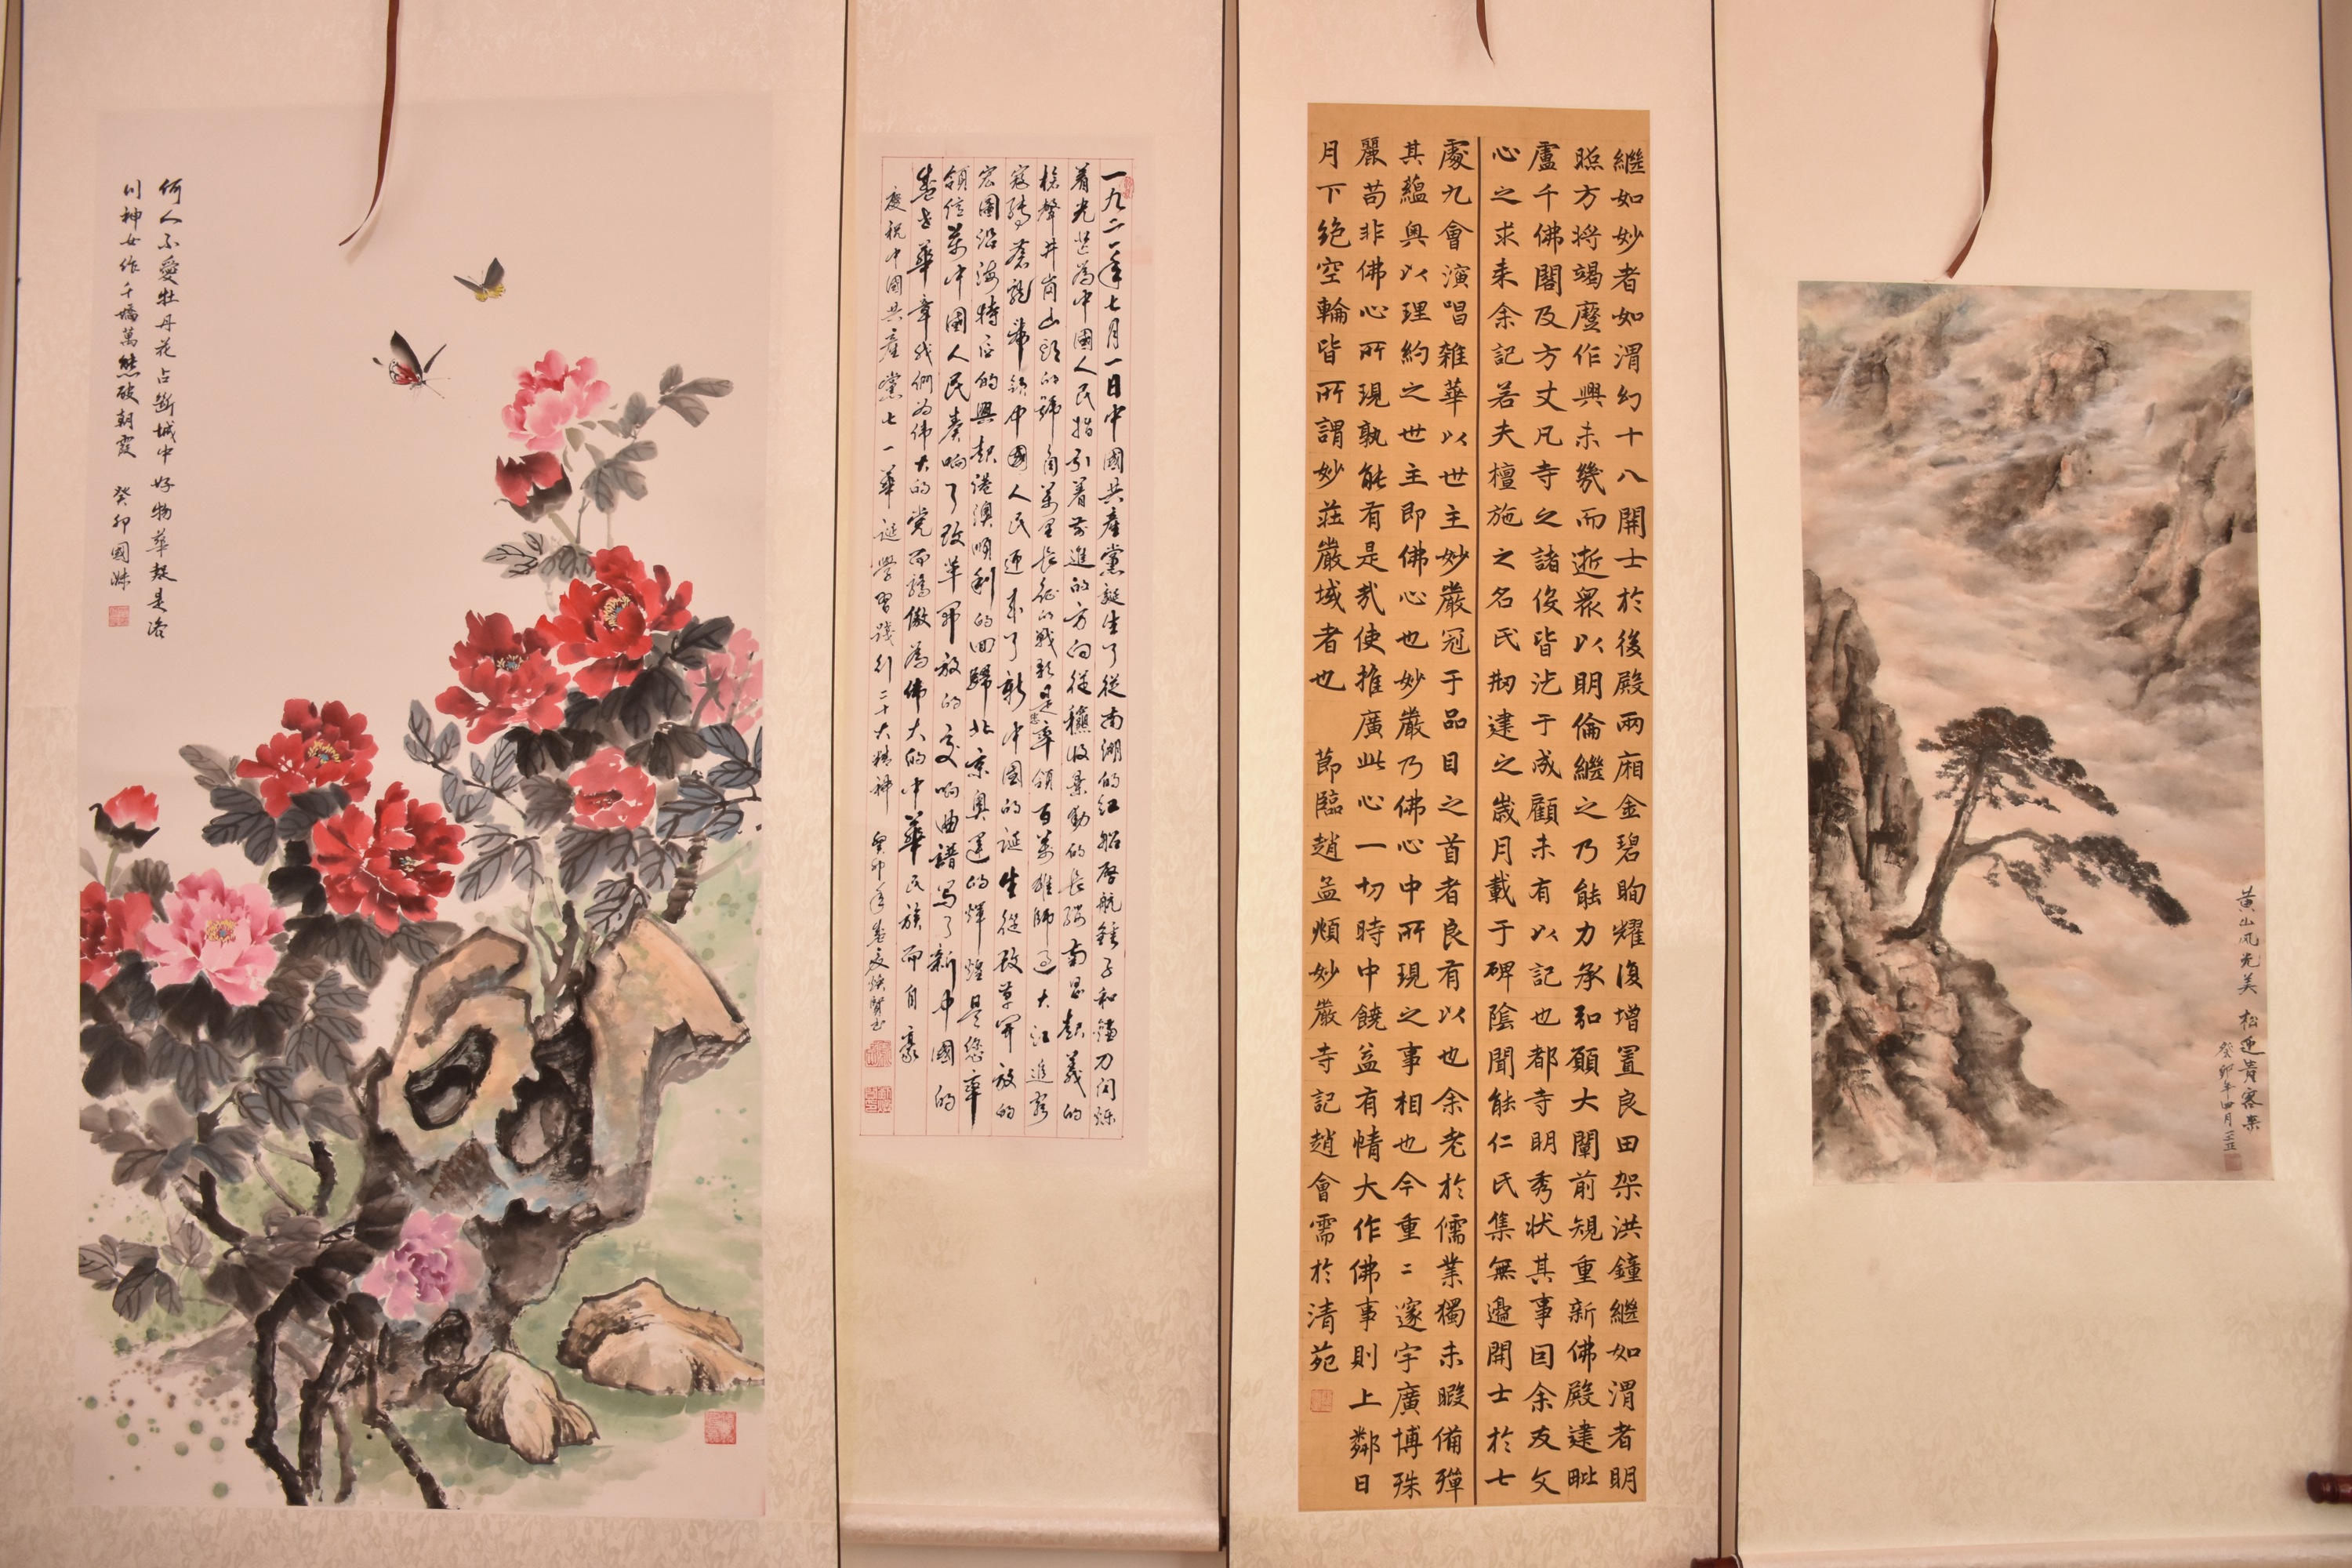 何人不愛牡丹花占斷城中好物華疑是洛
川神女作千嬌萬態破朝霞 癸卯國姝
一九二一年七月一日中國共產黨誕生了從南湖的紅船啓航錘子和鐮刀闪烁
着光芒為中國人民指引着前進的方向從穰收暴動的長纓南昌起義的
槍聲井崗山頭的號角萬里長征的戰歌是您率領百萬雄師過大江追窮
寇縛蒼龍带領中國人民迎来了新中国的诞生從改革開放的
宏圖沿海特區的興起港澳順利的回歸北京奧運的煇煌是您率
領億萬中國人民奏响了改革開放的交响曲譜写了新中國的
盛世華章我們为偉大的党而驕傲為偉大的中華民族而自豪
慶祝中國共產黨七一華誕學習踐行二十大精神 癸卯年
繼如妙者如渭幻十八開士於後殿兩廂金碧眴耀復增置良田架洪鐘繼如渭者明
照方將竭麼作興未幾而逝眾以明倫繼之乃能力承弘願大闡前規重新佛殿建毗
盧千佛閣及方丈凡寺之諸役皆汔于成顧未有以記也都寺明秀状其事囙余友文
心之求来余記若夫檀施之名氏刱建之嵗月載于碑陰聞能仁氏集無邉開士於七
處九會演唱雜華以世主妙嚴冠于品目之首者良有以也余老於儒業獨未暇備殫
其蘊奥以理約之世主即佛心也妙嚴乃佛心中所現之事相也今重二邃宇廣博殊
麗苟非佛心所現孰能有是㢤使推廣此心一切時中饒益有情大作佛事則上鄰日
月下絶空輪皆所謂妙莊嚴域者也 節臨趙孟頫妙嚴寺記趙會需於清苑
黄山风光美 松迎青客来
癸卯年四月